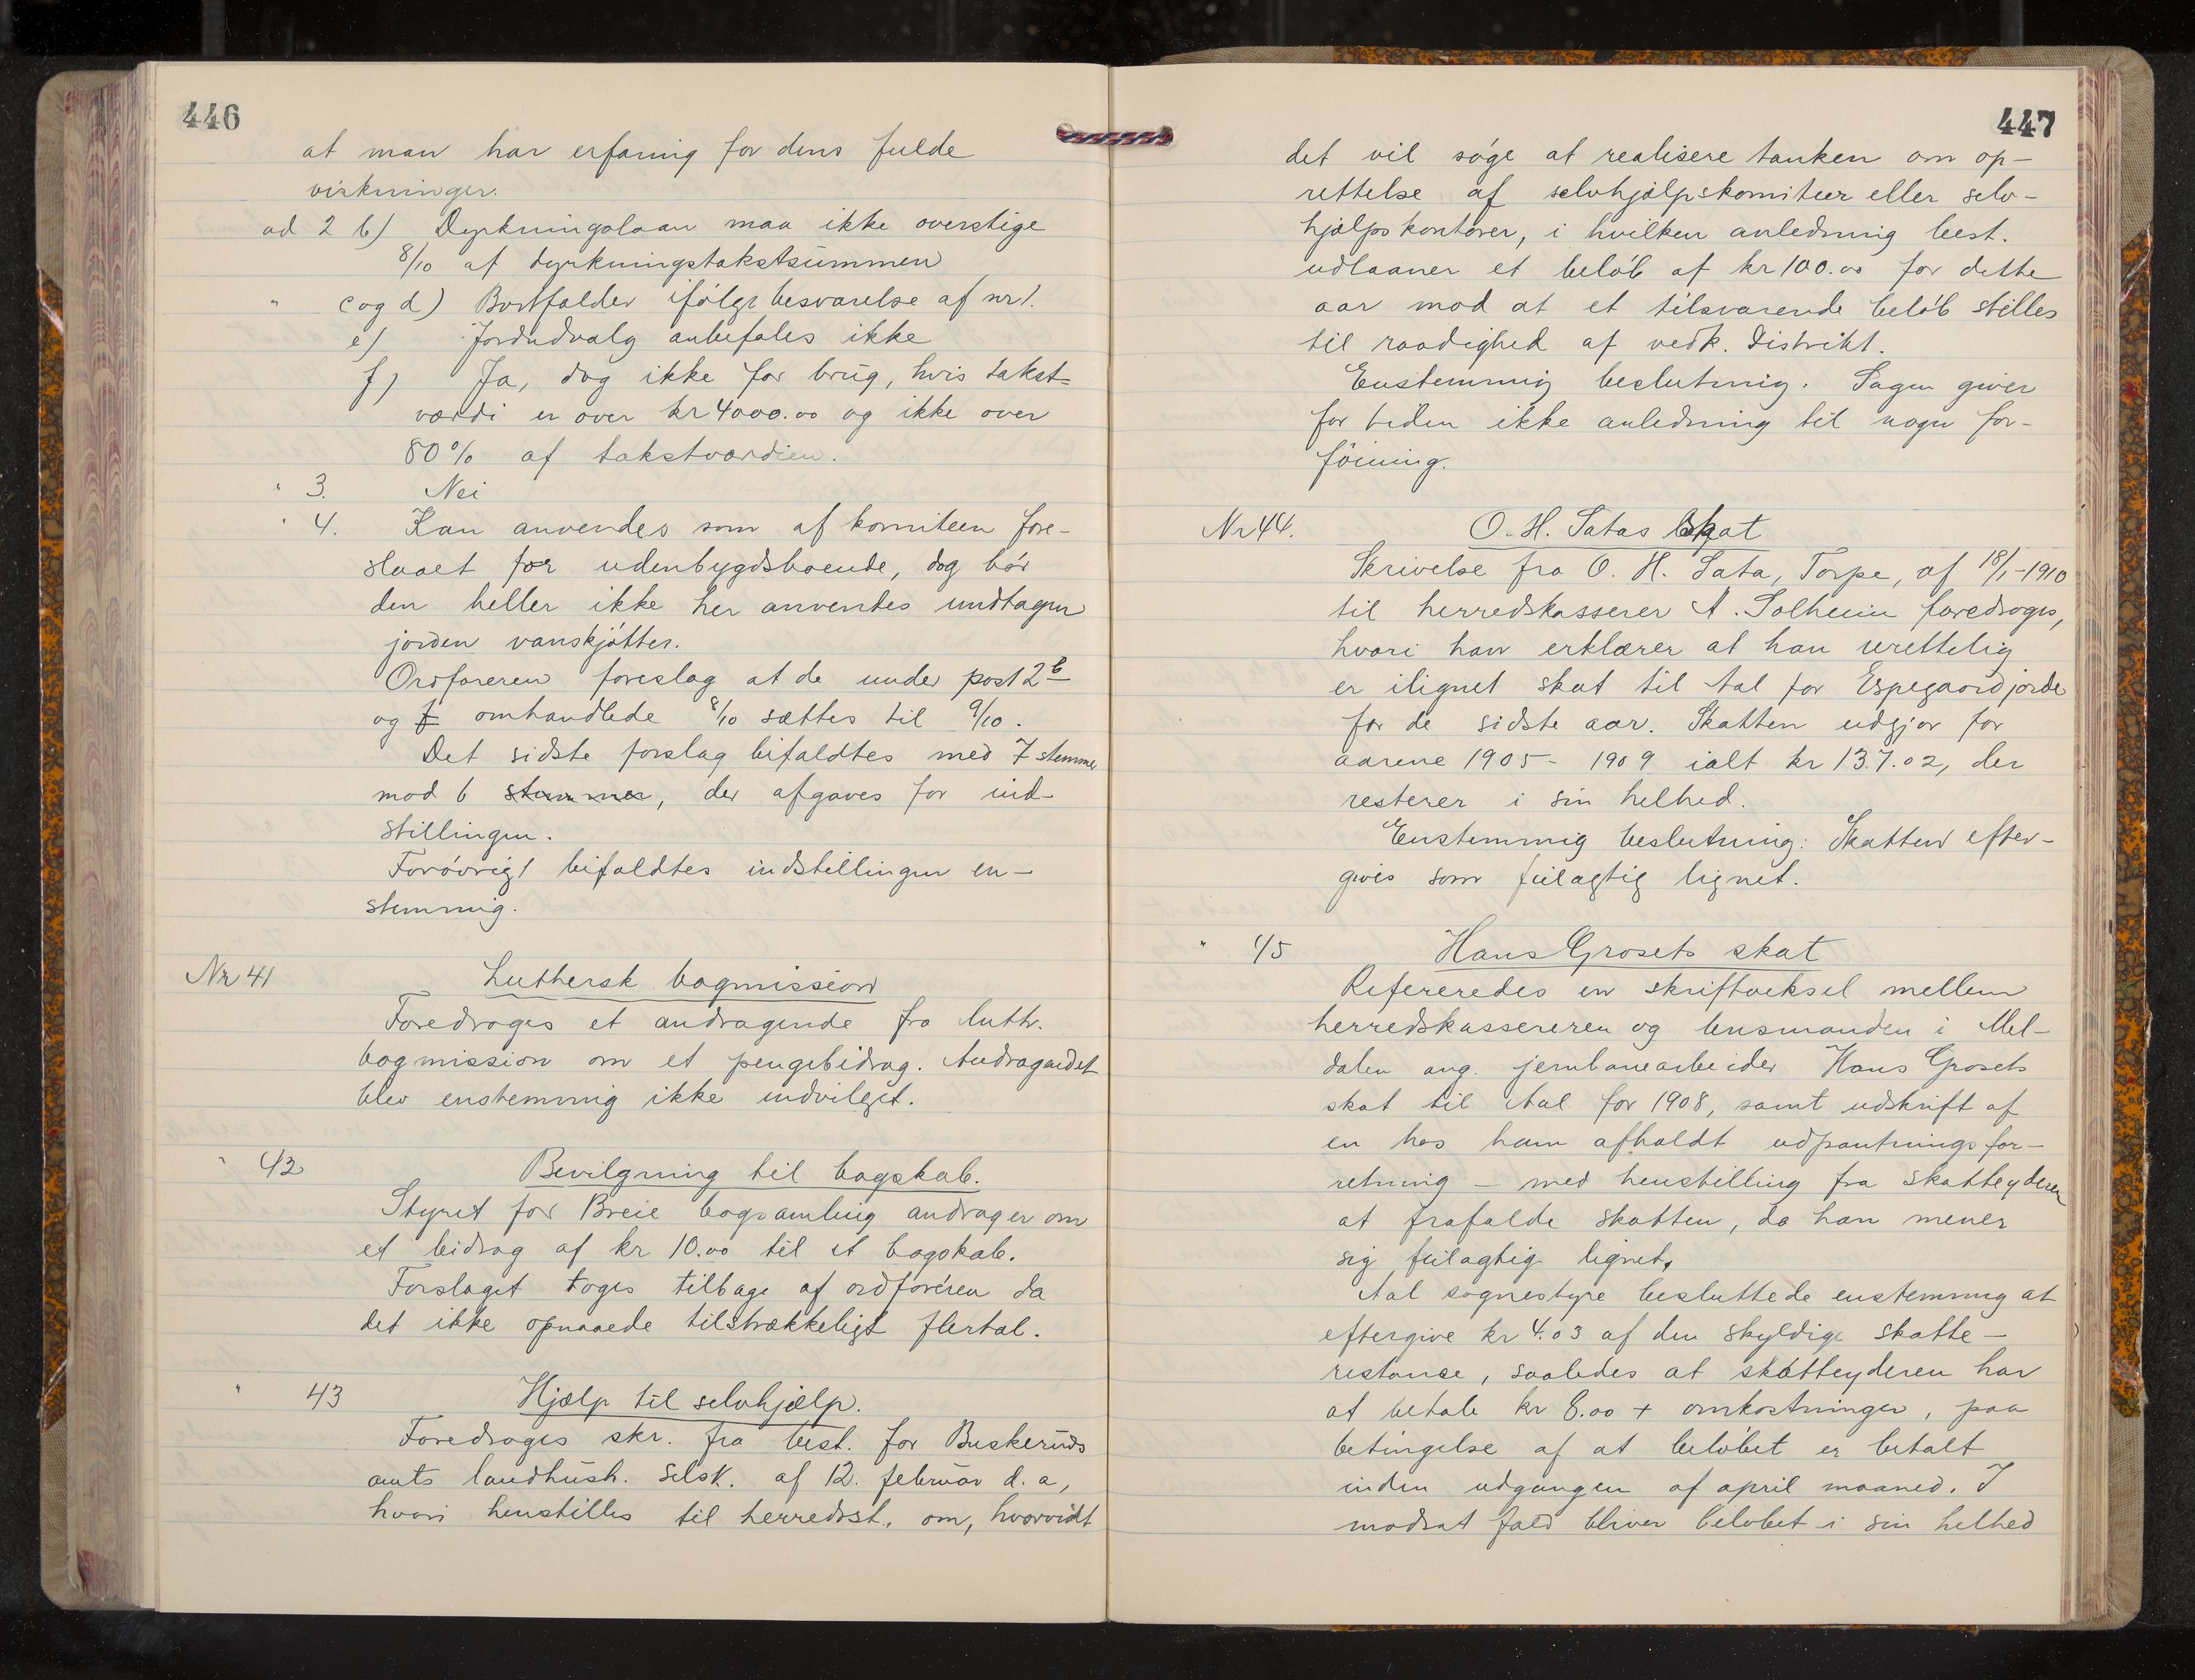 446
at man har erfaring for dens fulde
virkninger.
ad 2 b) Dyrkningslaan maa ikke overstige
8/10 af dyrkningstakstsummen
" c og d) Bortfalder ifölge besvarelse af nr 1.
e) Jordudvalg anbefales ikke
f) Ja, dog ikke for brug, hvis takst=
værdi er over kr 4000.00 og ikke over
80% af takstværdien.
" 3. Nei
" 4. Kan anvendes som af komiteen fore-
slaaet for udenbygdsboende, dog bör
den heller ikke her anvendes undtagen
jorden vanskjöttes.
Ordföreren foreslog at de under post 2 b
og f omhandlede 8/10 sættes til 9/10.
Det sidste forslag bifaldtes med 7 stemmer
mod 6 stemmer, der afgaves for ind-
stillingen.
Forövrigt bifaldtes indstillingen en-
stemmig.
Nr 41 Luthersk bogmission
Foredroges et andragende fra luth.
bogmission om et pengebidrag. Andragendet
blev enstemmig ikke indvilget.
" 42 Bevilgning til bogskab.
Styret for Breie bogsamling andrager om
et bidrag af kr 10.00 til et bogskab.
Forslaget toges tilbage af ordföreren da
det ikke opnaaede tilstrækkeligt flertal.
" 43 Hjælp til selvhjælp.
Foredroges skr. fra best. for Buskeruds
amts landhush. selsk. af 12. februar d. a,
hvori henstilles til herredsst. om, hvorvidt
447
det vil söge at realisere tanken om op-
rettelse af selvhjælpskomiteer eller selv-
hjælpskontorer, i hvilken anledning best.
udlaaner et belöb af kr 100.00 for dette
aar mod at et tilsvarende belöb stilles
til raadighed af vedk. Distrikt.
Enstemmig beslutning. Sagen giver
for tiden ikke anledning til nogen for-
föining.
Nr 44. O. H. Satas skat
Skrivelse fra O. H. Sata, Torpe, af 18/1-1910
til herredskasserer A. Solheim foredroges,
hvori han erklærer at han urettelig
er ilignet skat til Aal for Espegaardjorde
for de sidste aar. Skatten udgjør for
aarene 1905 - 1909 ialt kr 137.02, der
resterer i sin helhed.
Enstemmig beslutning: Skatten efter-
gives som feilagtig lignet.
" 45 Hans Grosets skat
Refereredes en skriftveksel mellem
herredskassereren og lensmanden i Mel-
dalen ang. jernbanearbeider Hans Grosets
skat til Aal for 1908, samt udskrift af
en hos ham afholdt udpantningsfor-
retning - med henstilling fra skatteyderen
at frafalde skatten, da han mener
sig feilagtig lignet.
Aal sognestyre besluttede enstemmig at
eftergive kr 4.03 af den skyldige skatte-
restance, saaledes at skatteyderen har
at betale kr 8.00 + omkostninger, paa
betingelse af at belöbet er betalt
inden udgangen af april maaned. I
modsat fald bliver belöbet i sin helhed